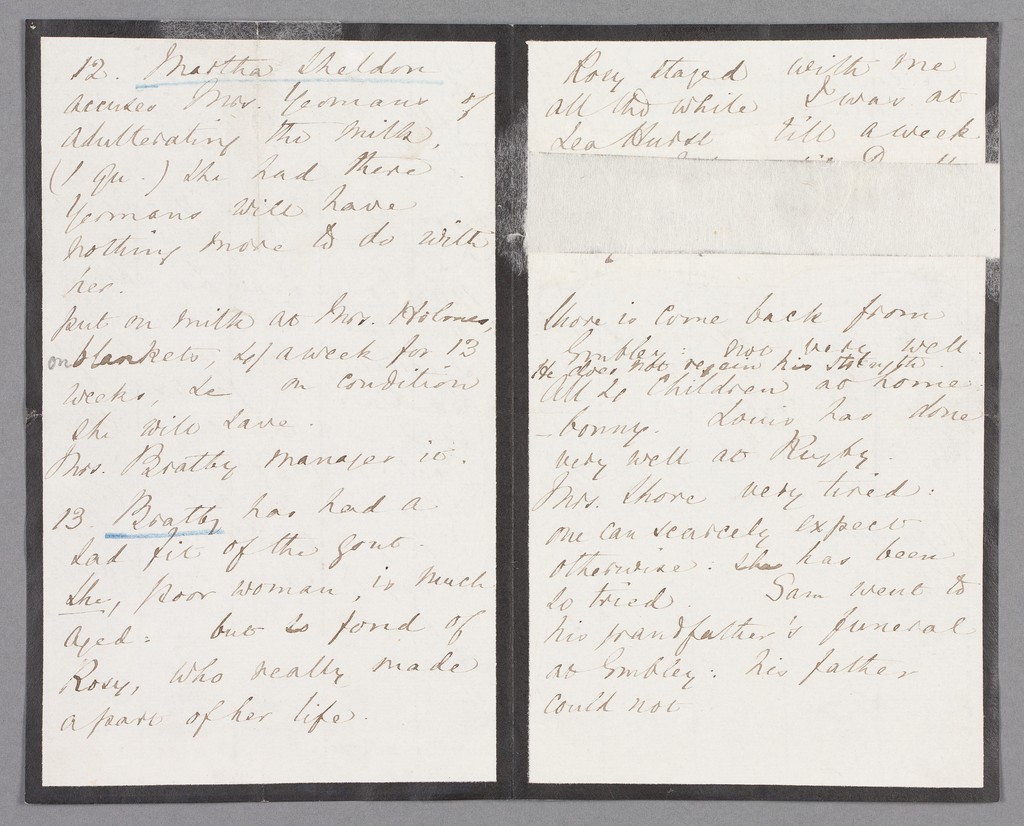 12. Martha Sheldon
accuses Mrs. Yeomans of
adulterating the milk,
(1 qu.) she had there.
Yeomans will have
nothing more to do with
her.
put on milk at Mrs. Holmes,
on blankets, a week for 13
weeks, on condition
she will save.
Mrs. Bratby manages it.
13. Bratby has had a
sad fit of the gout.
She, poor woman, is much
aged: but so fond of
Rosy, who really made
a part of her life.
Rosy stayed with me
all the while I was at
Lea Hurst till a week
Shore is come back from
Embley: not very well.
He does not regain his strength.
All so Children at home:
- bonny. Louis has done
very well at Rugby.
Mrs. Shore very tired:
one can scarcely expect
otherwise: she has been
so tried. Sam went to
his grandfather's funeral
at Embley: his father
could not